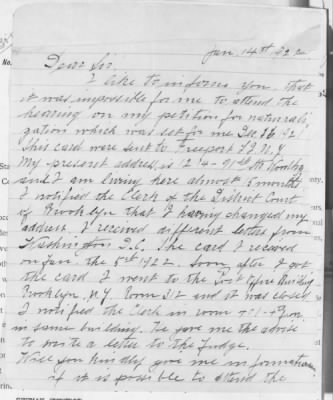 Jan. 14th 1922
Dear Sir.
I like to inform you, that
it was impossible for me to attend the
hearing on my petition for naturali
zation which was set for me Dec 1921
This card were sent to Freeport N.Y
My present address is 214-91st St Brooklyn
and I am living here almost 5 months
I notified the Clerk of the District Court
of Brooklyn that I having changed my
address. I received different letters from
Washington, D.C. The card I received
on Jan. the 5th 1922. Soon after I got
the card I went to the Post Office Building
Brooklyn, N.Y. Room 312 and it was closed
I notified the Clerk in room
in same building. He gave me the advise
to write a letter to the Judge.
Will you kindly give me information
if it is possible to attend the